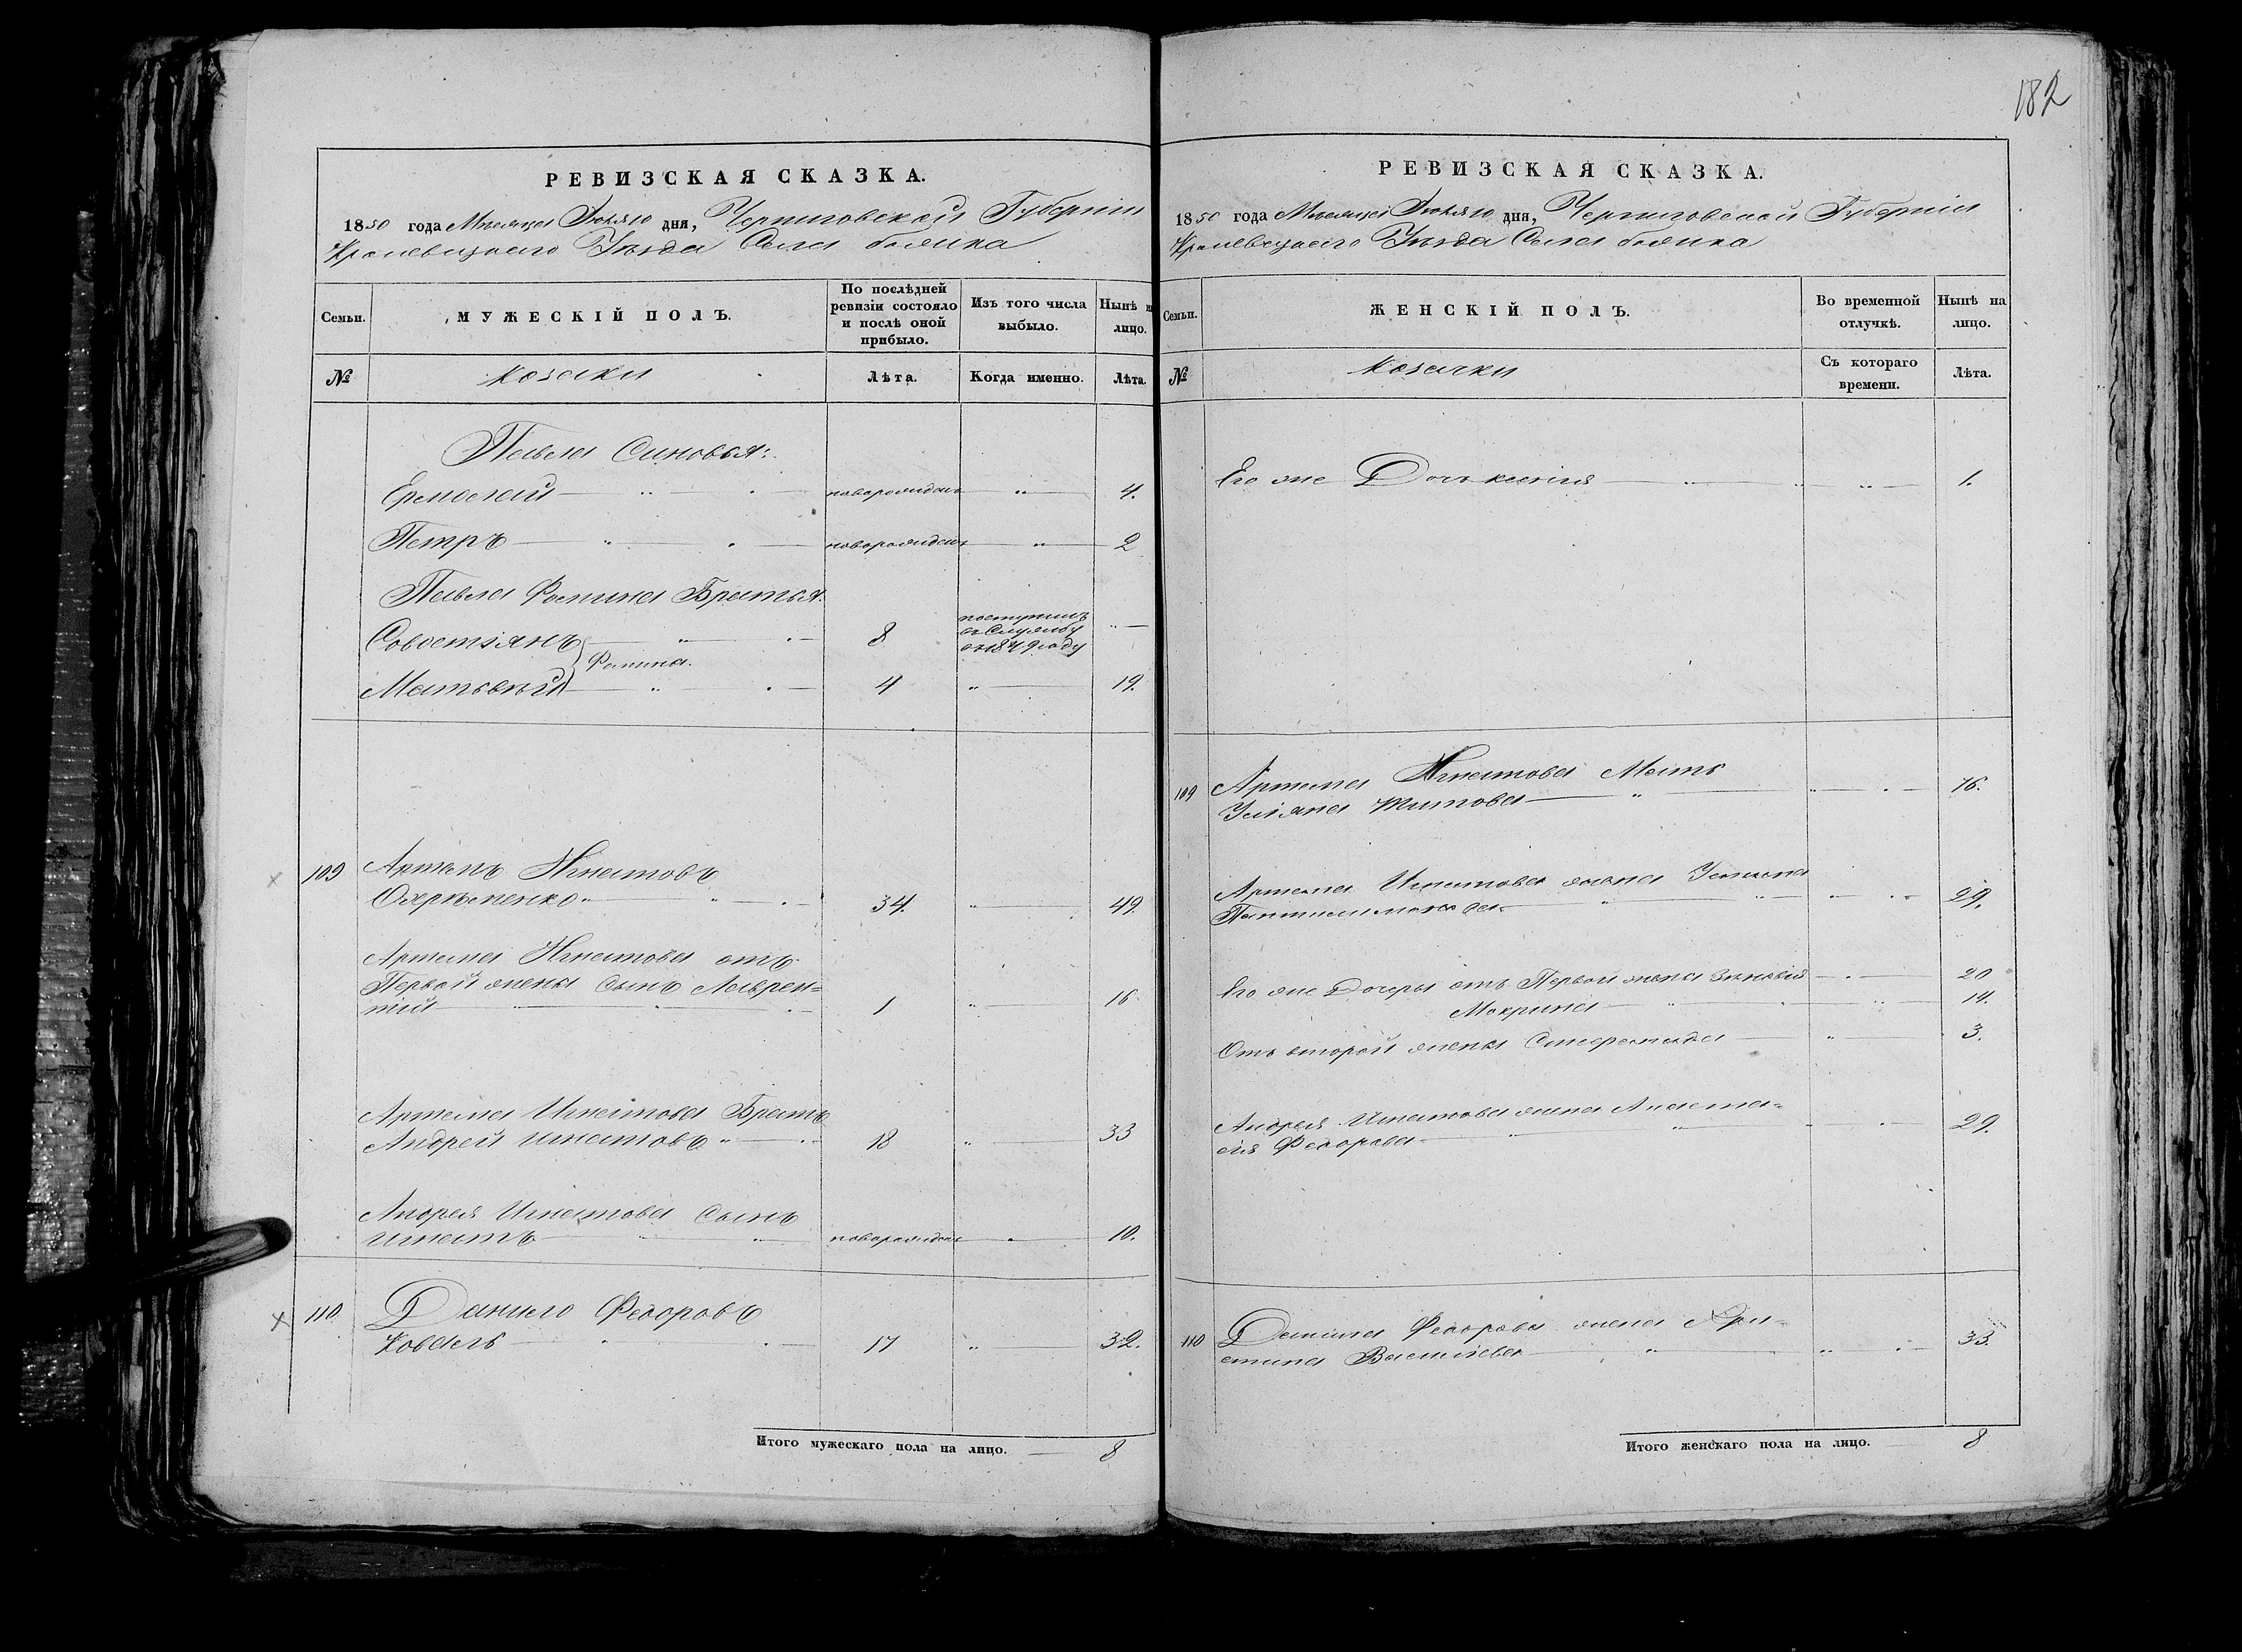 182
РЕВИЗСКАЯ СКАЗКА.
1850 года Месяца Июля 10 дня, Черниговской Губерніи
Кролевецкаго Уѣзда Села
Семьи.
МУЖЕСКІЙ ПОЛЪ.
По послѣдней ревизіи состояло и послѣ оной прибыло.
Изъ того числа выбыло.
Нынѣ на лицо.
№
Козаки
Лѣта.
Когда именно.
Лѣта.
Павла Синовья:
Ермолай новорожден 4.
Петръ новорожден 2
Павла Фомина Братья.
Совостіянъ 8 поступилъ въ Службу въ 1849 году
Фомина.
Матвѣй 4 19.
109 Артемъ Игнатовъ
Охрѣменко 34. 49.
Артема Игнатова отъ
Первой жены Сынъ Лаврен=
тій 1 16
Артема Игнатова Братъ
Андрей Игнатовъ 18 33
Андрея Игнатова Сынъ
Игнатъ новорожден 10.
110 Данило Федоровъ
Коваль 17 32.
Итого мужескаго пола на лицо. 8
РЕВИЗСКАЯ СКАЗКА.
1850 года Месяца Июля 10 дня, Черниговской Губерніи
Кролевецкаго Уѣзда Села
Семьи.
ЖЕНСКІЙ ПОЛЪ.
Во временной отлучкѣ.
Нынѣ на лицо.
№
Козачки
Съ котораго времени.
Лѣта.
Его же Дочь 1.
109 Артема Игнатова Мать
Уліяна Титова 76.
Артема Игнатова жена
29.
Его же Дочери отъ Первой жены Зѣновія 20
Макрина 14.
Отъ второй жены Стефанида 3.
Андрея Игнатова жена Анаста=
сія Федорова 29.
110 Данила Федорова жена Хри=
стина Васильева 33.
Итого женскаго пола на лицо. 8